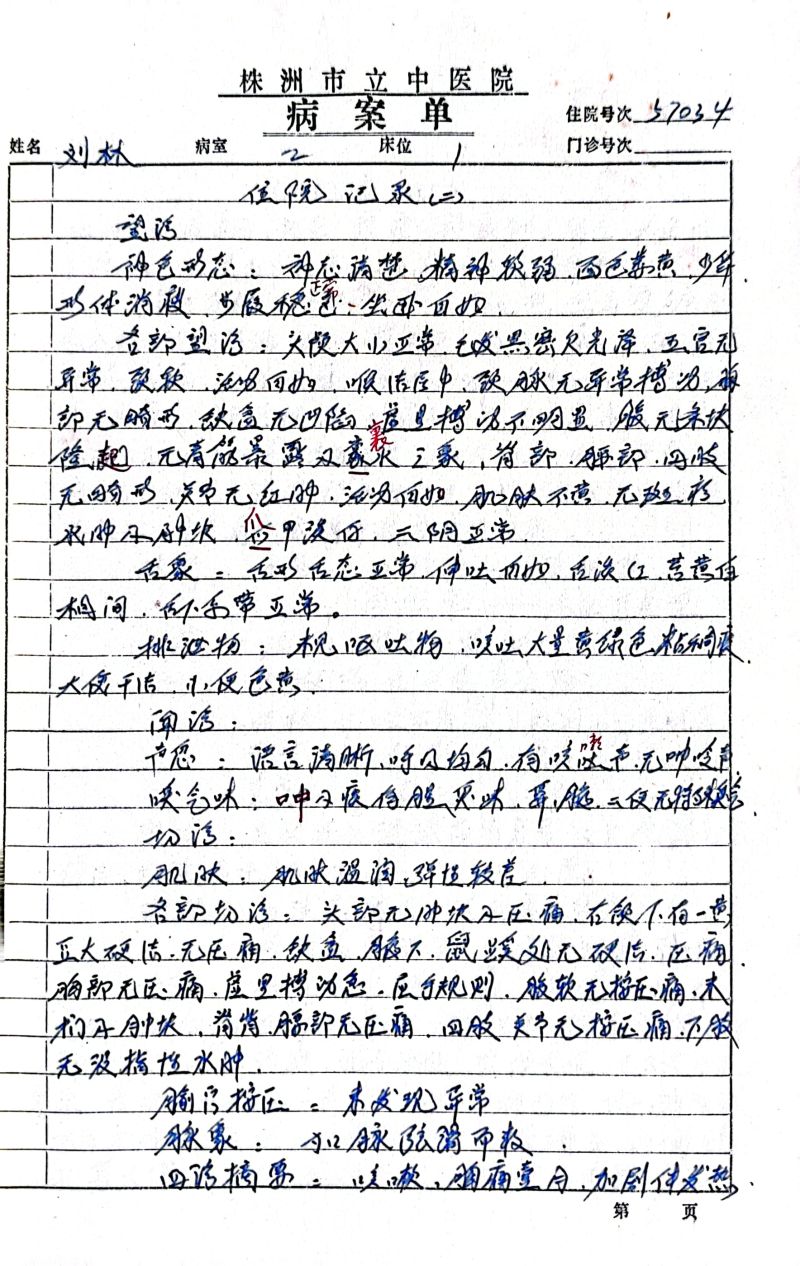 株洲市立中医院
病案单
住院号次 57034
姓名 刘林 病室 2 床位 1 门诊号次
住院记录(二)
望诊
神色形态：神志清楚、精神软弱、面色萎黄、少华
形体消瘦、步履稳正常、坐卧自如.
各部望诊：头颅大小正常、毛发黑密欠光泽、五官无
异常、颈软、活动自如、喉结居中、颈脉无异常搏动、胸
部无畸形、缺盆无凹陷、虚里搏动不明显、腹无条块
隆起、无青筋暴露及囊状之象、背部、腰部、四肢
无畸形、关节无红肿、活动自如、肌肤不黄、无斑疹
水肿及肿块、爪甲淡红、二阴正常.
舌象：舌形舌态正常、伸吐自如、舌淡红、苔黄白
相间、舌下系带正常。
排泄物：未见呕吐物、咳吐大量黄绿色粘稠痰、
大便干结、小便色黄.
闻诊：
声息：语言清晰、呼吸均匀、有咳嗽声、无呻吟声
嗅气味：呻及痰有腥臭味、鼻、二便无特殊
切诊：
肌肤：肌肤温润、弹性较差.
各部切诊：头部无肿块及压痛、右颌下有一黄
豆大硬结、无压痛、缺盆、腋下、鼠蹊处无硬结、压痛
胸部无压痛、虚里搏动急、应手规则、腹软无按压痛、未
扪及肿块、脊背、腰部无压痛、四肢关节无按压痛、下肢
无没指性水肿.
腧穴按压：未发现异常
脉象：寸口脉弦滑而数.
四诊摘要：咳嗽、胸痛壹月、加剧伴发热
第 页